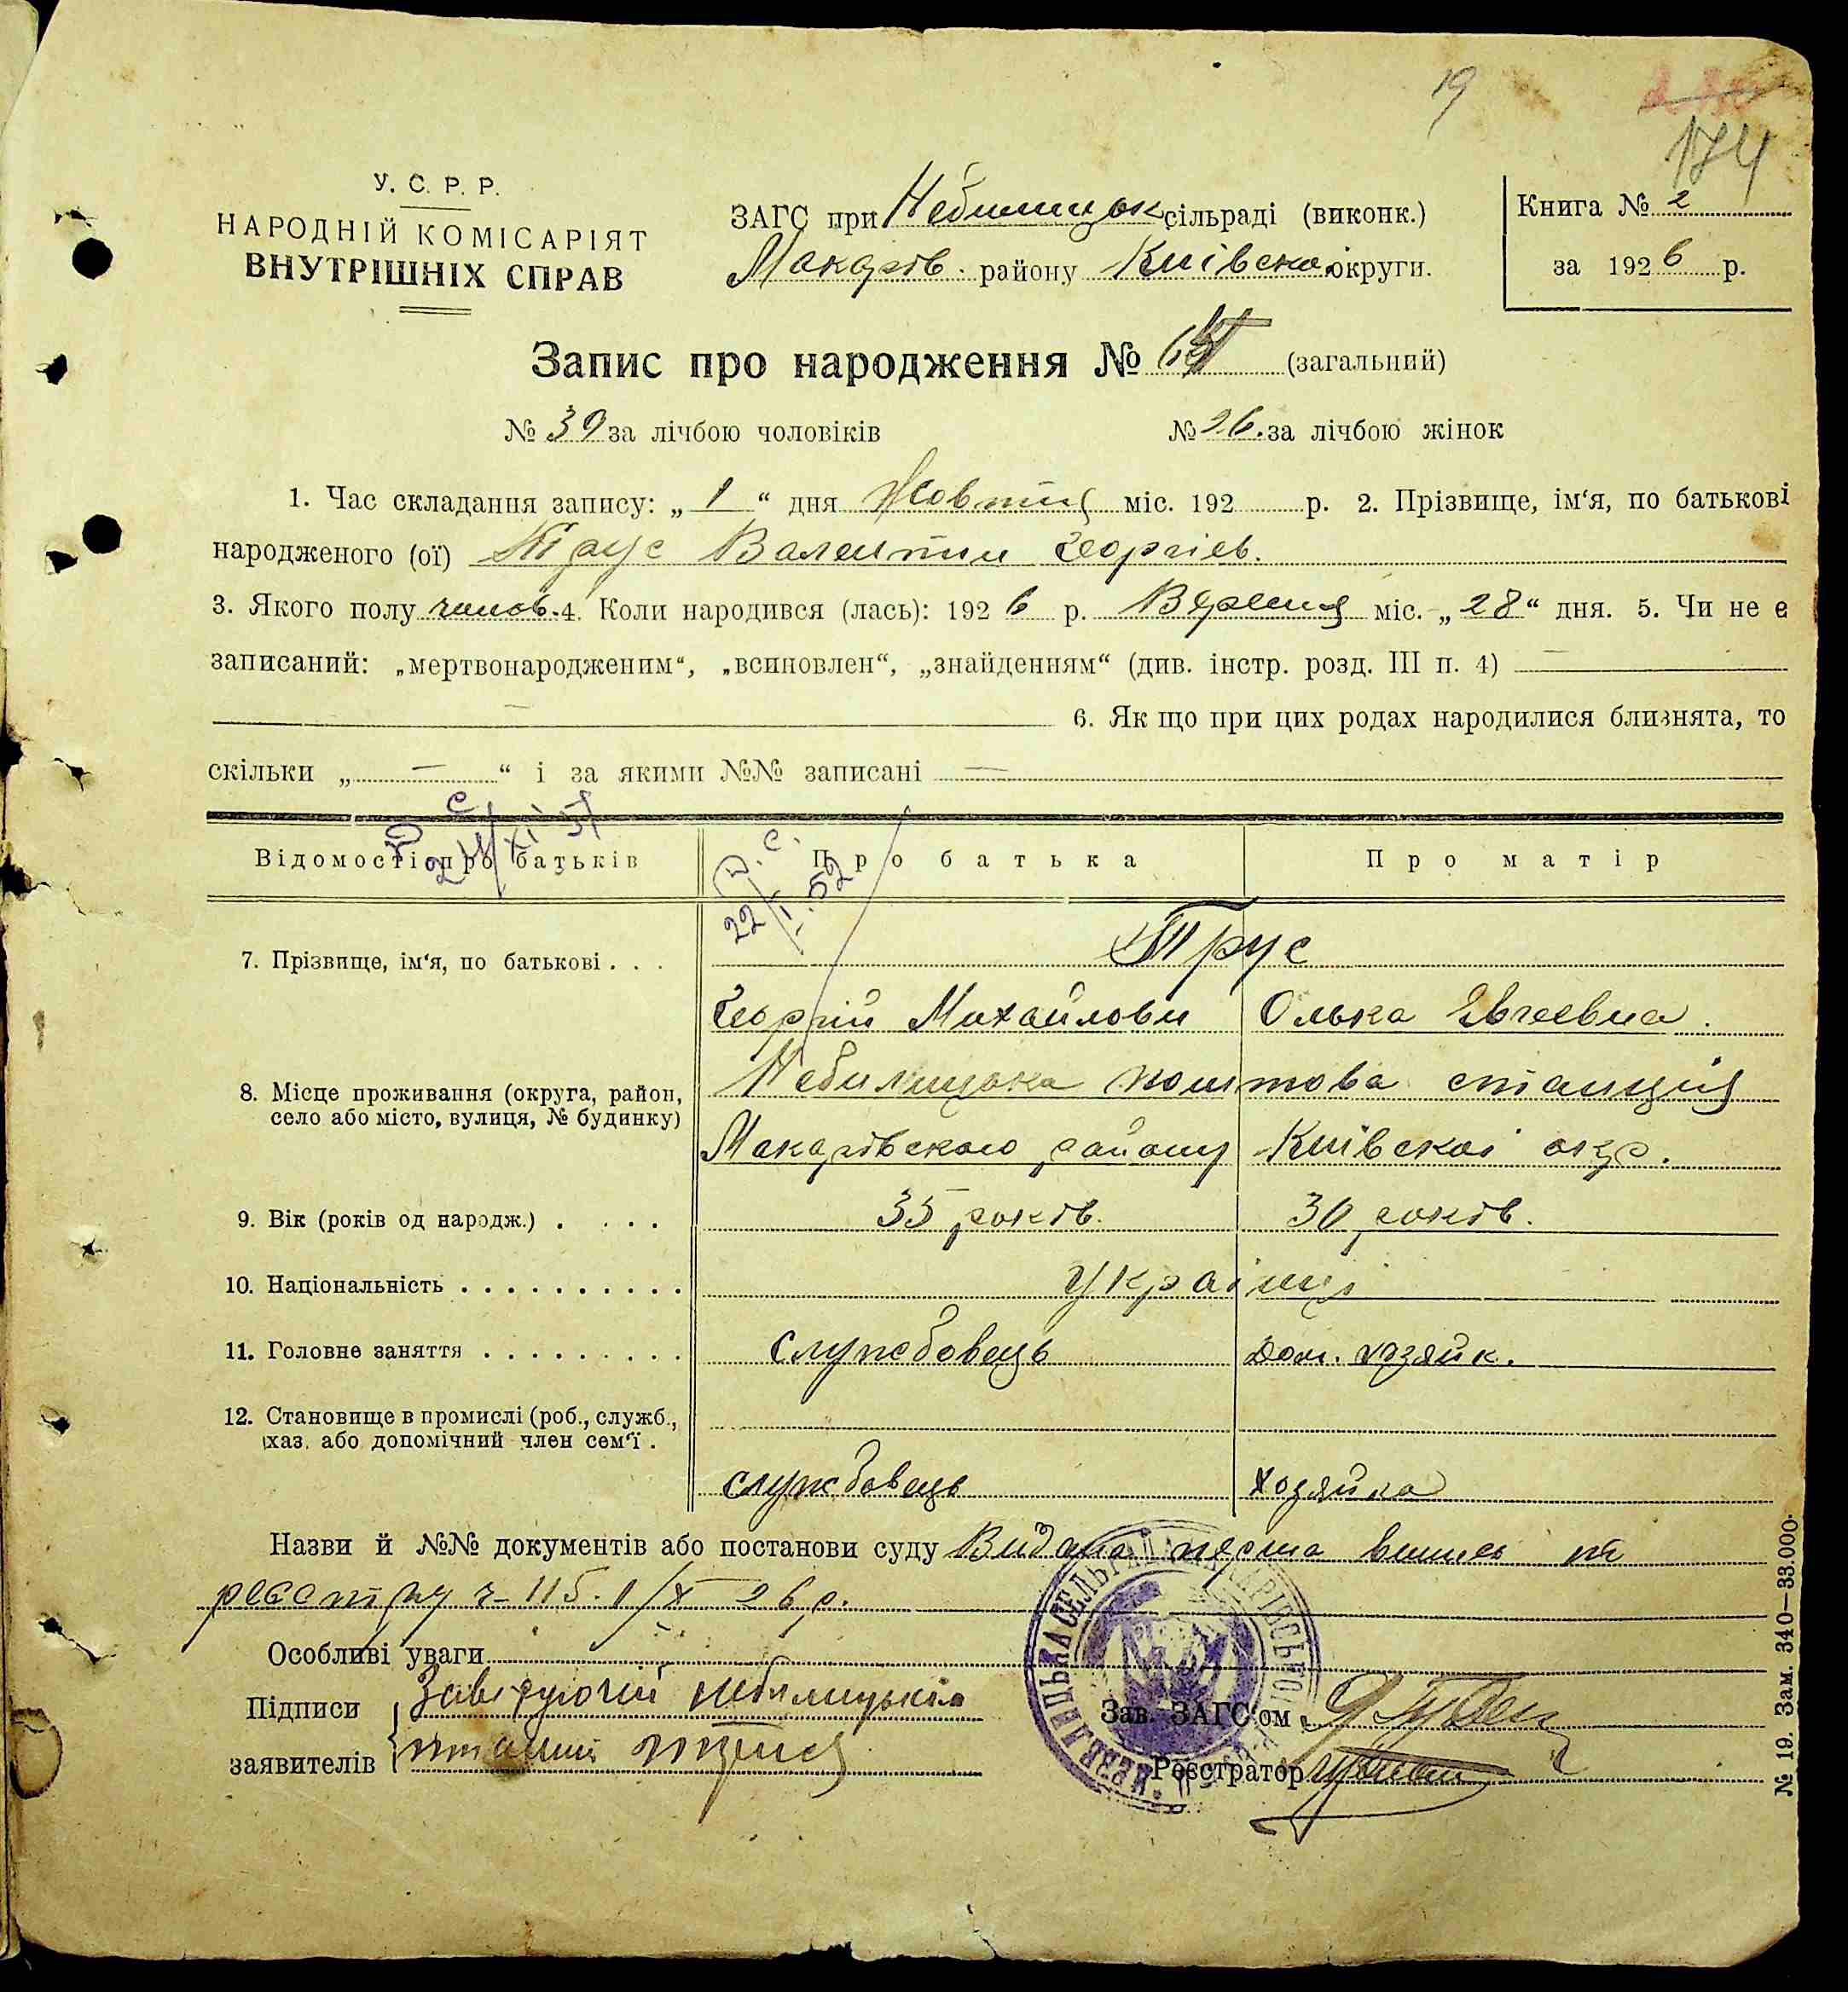 19
174
У. С. Р. Р.
НАРОДНІЙ КОМІСАРІЯТ
ВНУТРІШНІХ СПРАВ
ЗАГС при Небилицьк сільраді (виконк.)
Макарів. району Київсько округи.
Книга № 2
за 1926 р.
Запис про народження № (загальний)
№ 39 за лічбою чоловіків № 26. за лічбою жінок
1. Час складання запису: „ 1 “ дня Жовтня міс. 192 р. 2. Прізвище, ім‘я, по батькові
народженого (ої) Трус Валентин Георгіев.
3. Якого полу чолов. 4. Коли народився (лась): 192 6 р. Вересня міс. „ 28 “ дня. 5. Чи не є
записаний: „мертвонародженим“, „всиновлен“, „знайденням“ (див. інстр. розд. III п. 4) —
— 6. Як що при цих родах народилися близнята, то
скільки „ — “ і за якими №№ записані —
Відомості про батьків Про батька Про матір
D. C.
22/I.52
7. Прізвище, ім‘я, по батькові . . . Трус
Георгій Михайлови Олька Евгеевна.
8. Місце проживання (округа, район,
село або місто, вулиця, № будинку)
Небилицька поштова станция
Макарівского району Київскоі окр.
9. Вік (років од народж.) . . . . 35 років. 30 років.
10. Національність . . . . . . . . . . українці
11. Головне заняття . . . . . . . . . службовець дом. хозяйк.
12. Становище в промислі (роб., служб.,
хаз. або допомічний член сем‘ї .
службовець хозяйка
Назви й №№ документів або постанови суду Видана перша випись по
реестру ч- 115. 1/X 26 р.
Особливі уваги
Підписи Завідуючий небилицькою
заявителів
Зав. ЗАГС‘ом
Реєстратор
№ 19. Зам. 340—33.000.